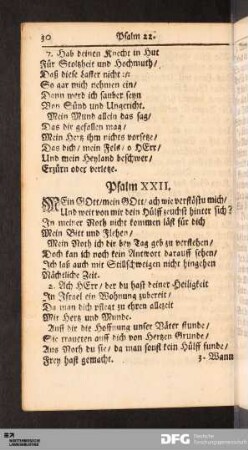 30 Psalm 22.
7. Hab deinen Knecht in Hut
Für Stoltzheit und Hochmuth/
Daß diese Laster nicht
So gar mich nehmen ein/
Dann werd ich sauber seyn
Von Sünd und Ungericht.
Mein Mund allein das sag/
Das dir gefallen mag/
Mein Hertz ihm nichts vorsetze/
Das dich/ mein Fels/ o HErr/
Und mein Heyland beschwer/
Erzürn oder verletze.
Psalm XXII.
MEin GOtt/ mein GOtt/ ach wie verstöstu mich/
Und weit von mir dein Hülff zeuchst hinter sich?
In meiner Noth nicht kommen läst für dich
Mein Bitt und Flehen/
Mein Noth ich dir bey Tag geb zu verstehen/
Doch kan ich noch kein Antwort darauff sehen/
Ich laß auch mit Stillschweigen nicht hingehen
Nächtliche Zeit.
2. Ach HErr/ der du hast deiner Heiligkeit
In Israel ein Wohnung zubereit/
Da man dich pflegt zu ehren allezeit
Mit Hertz und Munde.
Auff dir die Hoffnung unser Väter stunde/
Sie traueten auff dich von Hertzen Grunde/
Aus Noth du sie/ da man sonst kein Hülff funde/
Frey hast gemacht.
3. Wann
DFG Deutsche Forschungsgemeinschaft